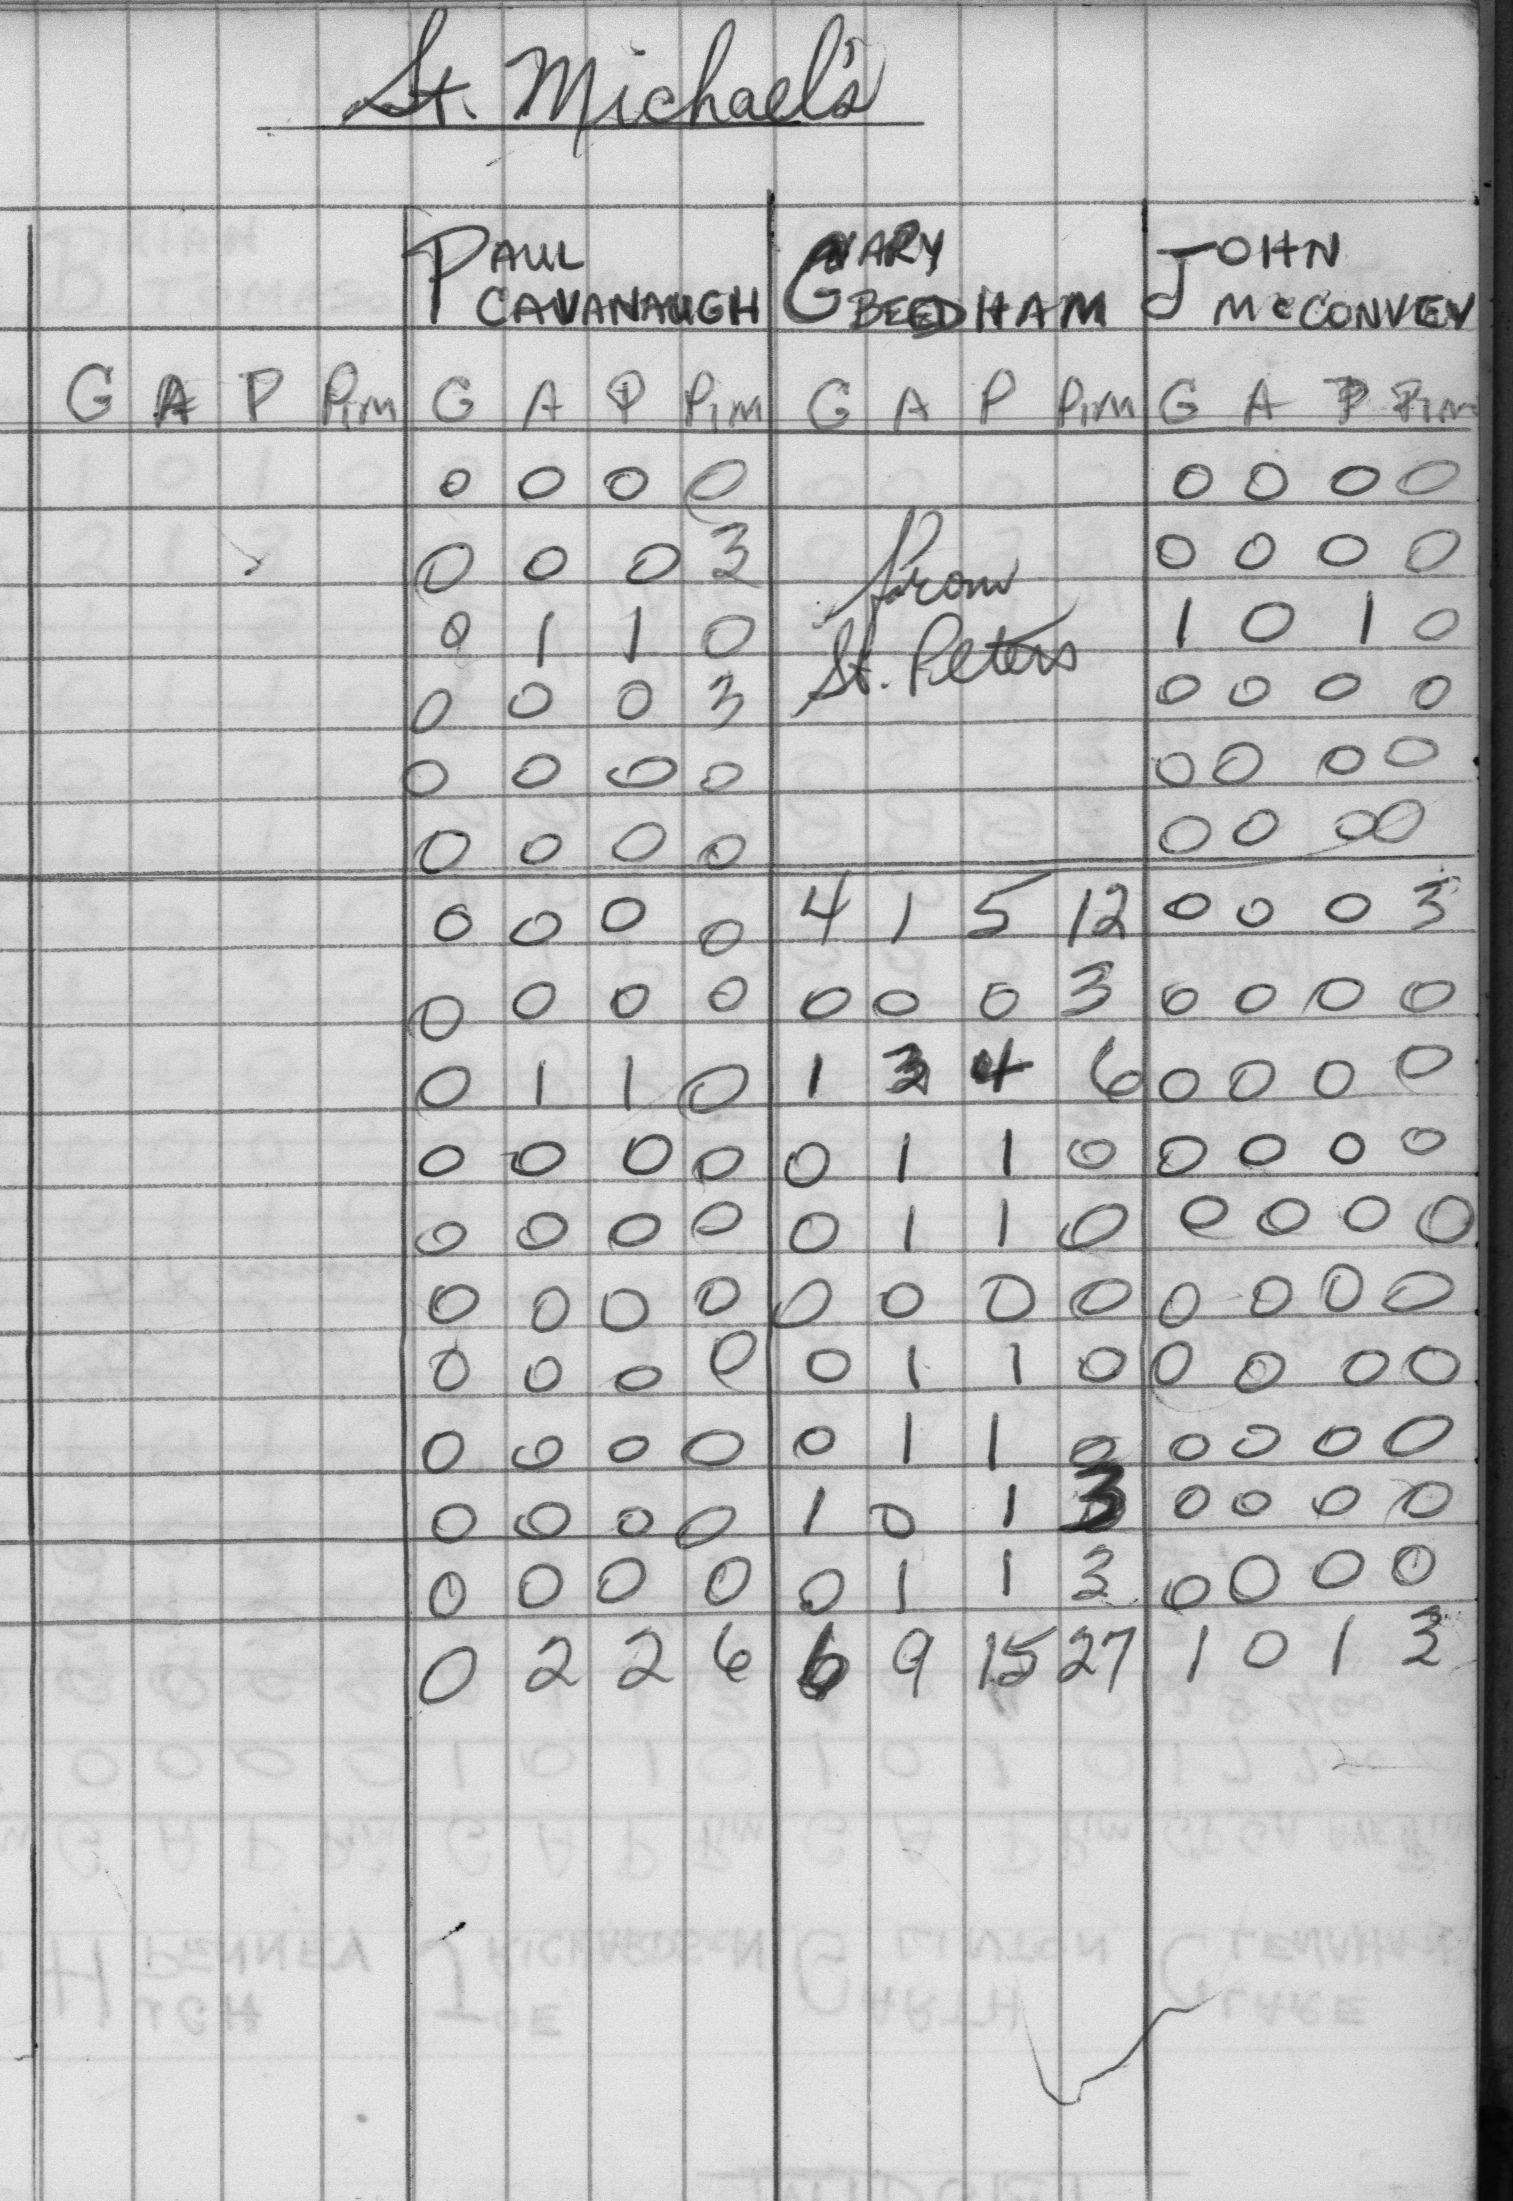 St. Michael's
PAUL CAVANAUGH GARY BEEDHAM JOHN McCONVEY
G A P PiM G A P PiM G A P PiM G A P PiM
0 0 0 0 0 0 0 0
0 0 0 3 from 0 0 0 0
0 1 1 0 St. Peters 1 0 1 0
0 0 0 3 0 0 0 0
0 0 0 0 0 0 0 0
0 0 0 0 0 0 0 0
0 0 0 0 4 1 5 12 0 0 0 3
0 0 0 0 0 0 0 3 0 0 0 0
0 1 1 0 1 3 4 6 0 0 0 0
0 0 0 0 0 1 1 0 0 0 0 0
0 0 0 0 0 1 1 0 0 0 0 0
0 0 0 0 0 0 0 0 0 0 0 0
0 0 0 0 0 1 1 0 0 0 0 0
0 0 0 0 0 1 1 0 0 0 0 0
0 0 0 0 1 0 1 3 0 0 0 0
0 0 0 0 0 1 1 3 0 0 0 0
0 2 2 6 6 9 15 27 1 0 1 3